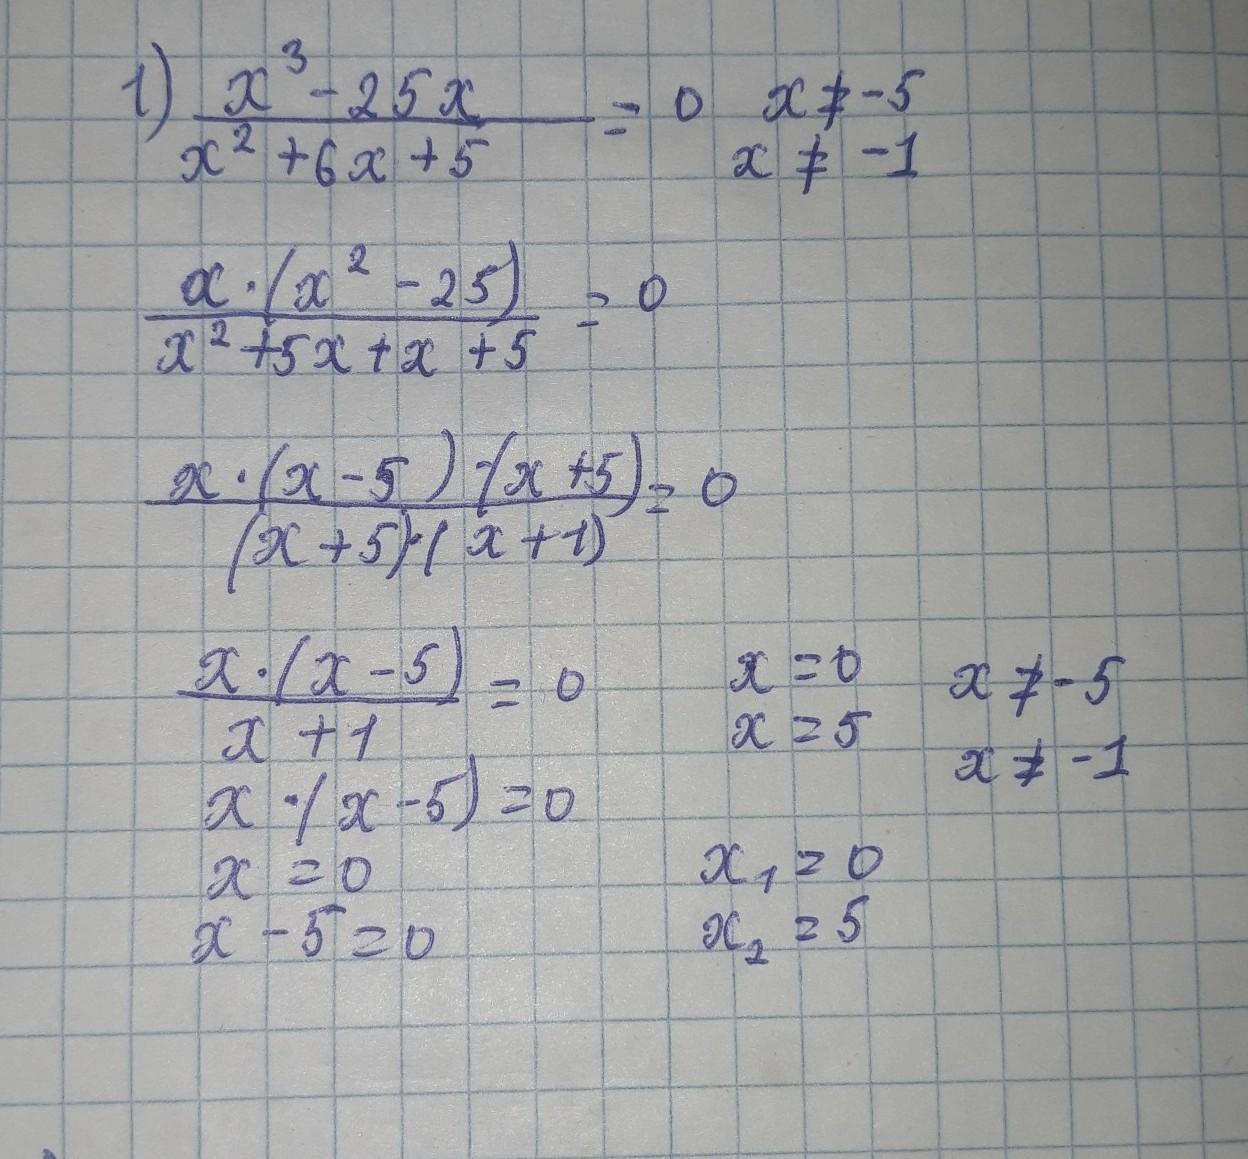 1) x³ - 25x / x² + 6x + 5 = 0 x ≠ -5
x ≠ -1
x · (x² - 25) / x² + 5x + x + 5 = 0
x · (x - 5) · (x + 5) / (x + 5) · (x + 1) = 0
x · (x - 5) / x + 1 = 0 x = 0 x ≠ -5
x = 5 x ≠ -1
x · (x - 5) = 0
x = 0 x₁ = 0
x - 5 = 0 x₂ = 5